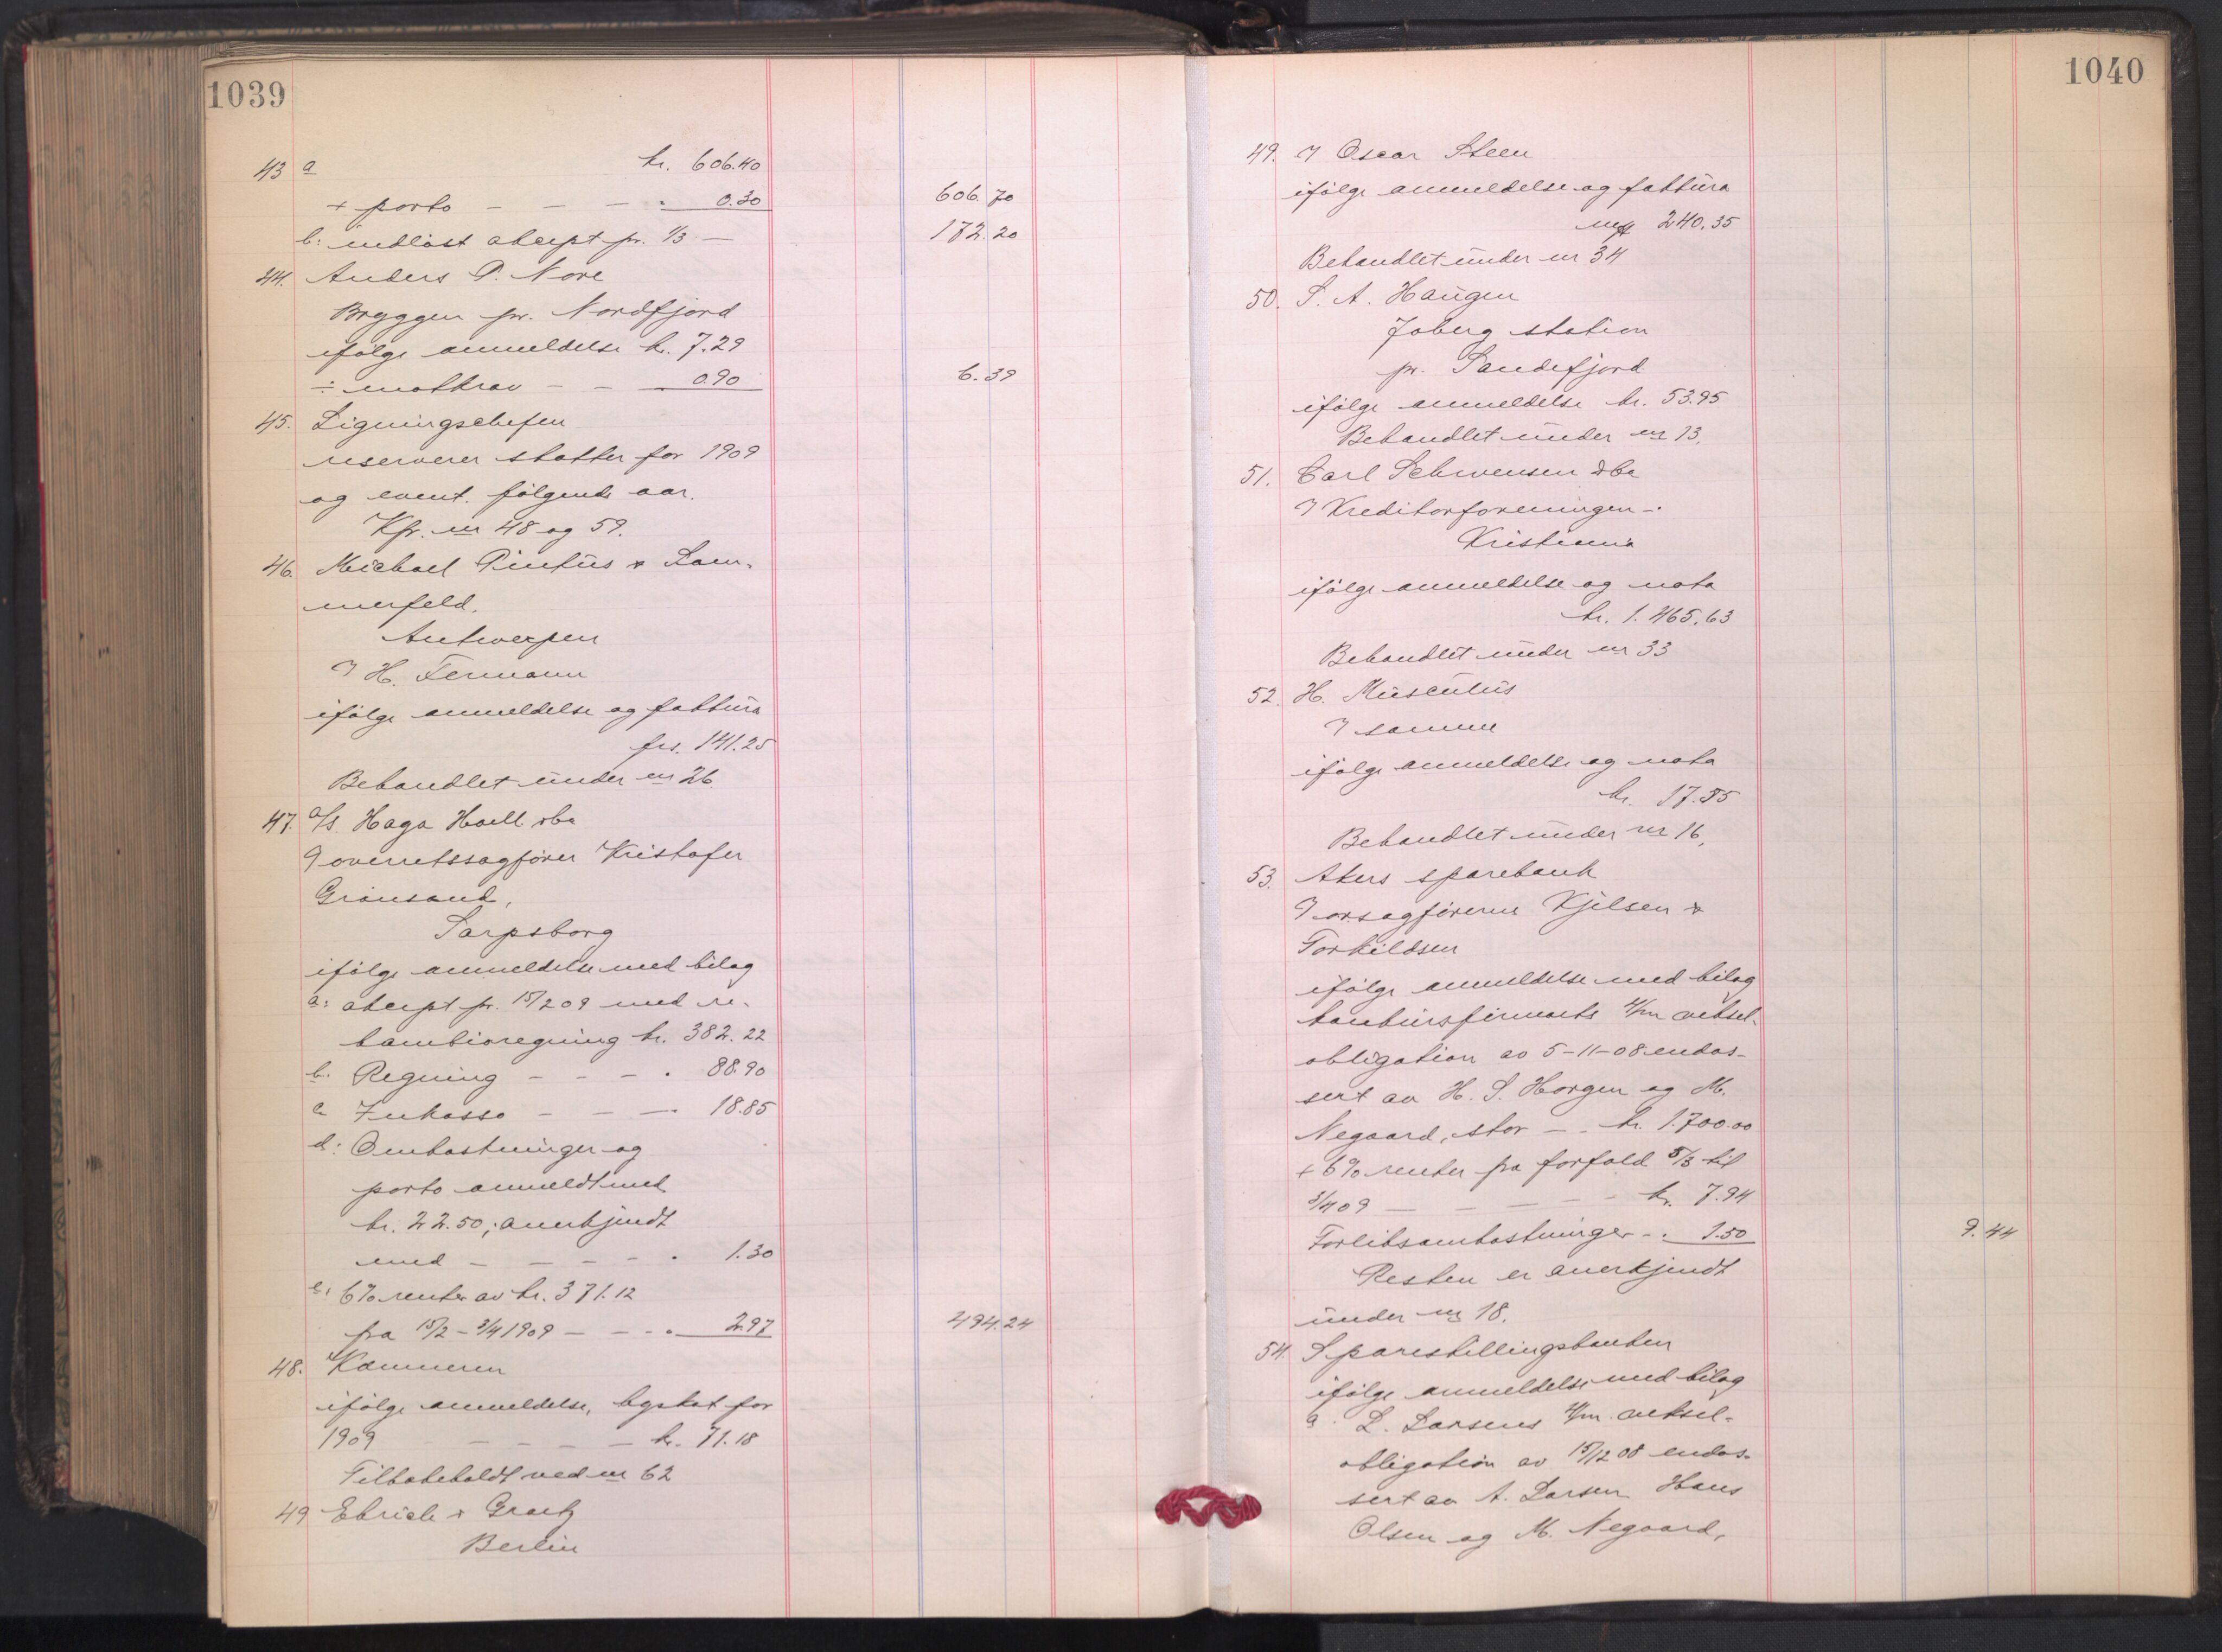 1039
43 a kr. 606.40
+ porto — — — . 0.30 606.70
b: indløst aksept pr. 1/3 — 172.20
44. Anders P. Nore
Bryggen pr. Nordfjord
ifølge anmeldelse kr. 7.29
÷ motkrav — — 0.90 6.39
45. Ligningschefen
reserverer skatter for 1909
og event. følgende aar.
Kfr. nr 48 og 59.
46. Michael Pintus & Som-
merfeld.
Antwerpen
H. Fermann
ifølge anmeldelse og faktura
frs. 141.25
Behandlet under nr 26
47. A/S. Haga Hoell dba
overretssagfører Kristofer
Grønsand,
Sarpsborg
ifølge anmeldelse med bilag
a: aksept pr. 15/2 09 med re-
kambioregning kr. 382.22
b. Regning — — — . 88.90
c Inkasso — — — . 18.85
d: Omkostninger og
porto anmeldt med
kr. 22.50; anerkjendt
med — — — — . 1.30
e: 6% renter av kr. 371.12
fra 15/2 – 3/4 1909 — — . 2.97 494.24
48. Kæmneren
ifølge anmeldelse, byskat for
1909 — — — — kr. 71.18
Tilbakeholdt ved nr 62
49 Ehrich & Graetz
Berlin
1040
49. Oscar Steen
ifølge anmeldelse og faktura
240.35
Behandlet under nr 34
50. S. A. Haugen
Joberg station
pr. Sandefjord
ifølge anmeldelse kr. 53.95
Behandlet under nr 13.
51. Carl Schwensen dba
Kreditorforeningen -.
Kristiania
ifølge anmeldelse og nota
kr. 1.465.63
Behandlet under nr 33
52. H. Musculus
samme
ifølge anmeldelse og nota
kr. 17.55
Behandlet under nr 16.
53. Akers sparebank
orsagførerne Kjelsen &
Torkildsen
ifølge anmeldelse med bilag
konkursfirmaets 4/m veksel-
obligation av 5-11-08 endos-
sert av H. S. Horgen og M.
Negaard, stor — . kr. 1.700.00
+ 6% renter fra forfald 5/3 til
3/4 09 — — — — kr. 7.94
Forliksomkostninger - . 1.50 9.44
Resten er anerkjendt
under nr 18.
54. Spareskillingsbanken
ifølge anmeldelse med bilag
a. L. Larsens 4/m veksel-
obligation av 15/12 08 endos-
sert av A. Larsen Hans
Olsen og M. Negaard,